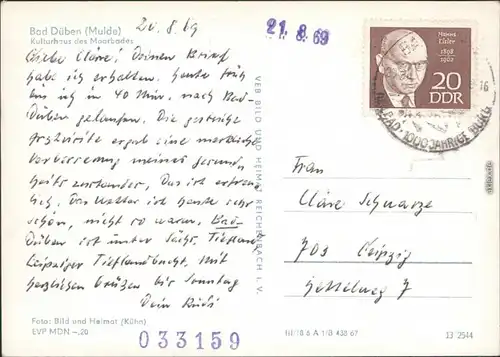 Bad Düben (Mulde)
Kulturhaus des Moorbades
20.8.69
21.8.69
Liebe Cläre! Deinen Brief
habe ich erhalten. Heute früh
bin ich in 40 Min. nach Bad-
Düben gelaufen. Die gestrige
ergab eine merkliche
Verbesserung meines Gesund-
heitszustandes. Das ist erfreu-
lich. Das Wetter ist heute sehr
schön, nicht so warm. Bad-
Düben ist unter Sächs. Tiefland
Leipziger Tieflandbucht. Mit
herzlichen Grüßen bis Sonntag
Dein Rudi
Foto: Bild und Heimat (Kühn)
EVP MDN –,20
033159
VEB BILD UND HEIMAT REICHENBACH I. V.
Hanns
Eisler
1898
1962
20
DDR
BAD · 1000JÄHRIGE BURG
16
Frau
Cläre Schwarze
703 Leipzig
7
III/18/6 A 1/B 438 67
13 2544